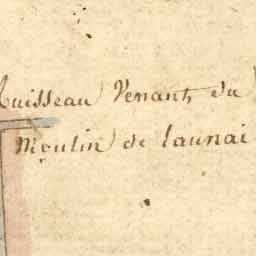 Ruisseau Venant du
Moulin de launai